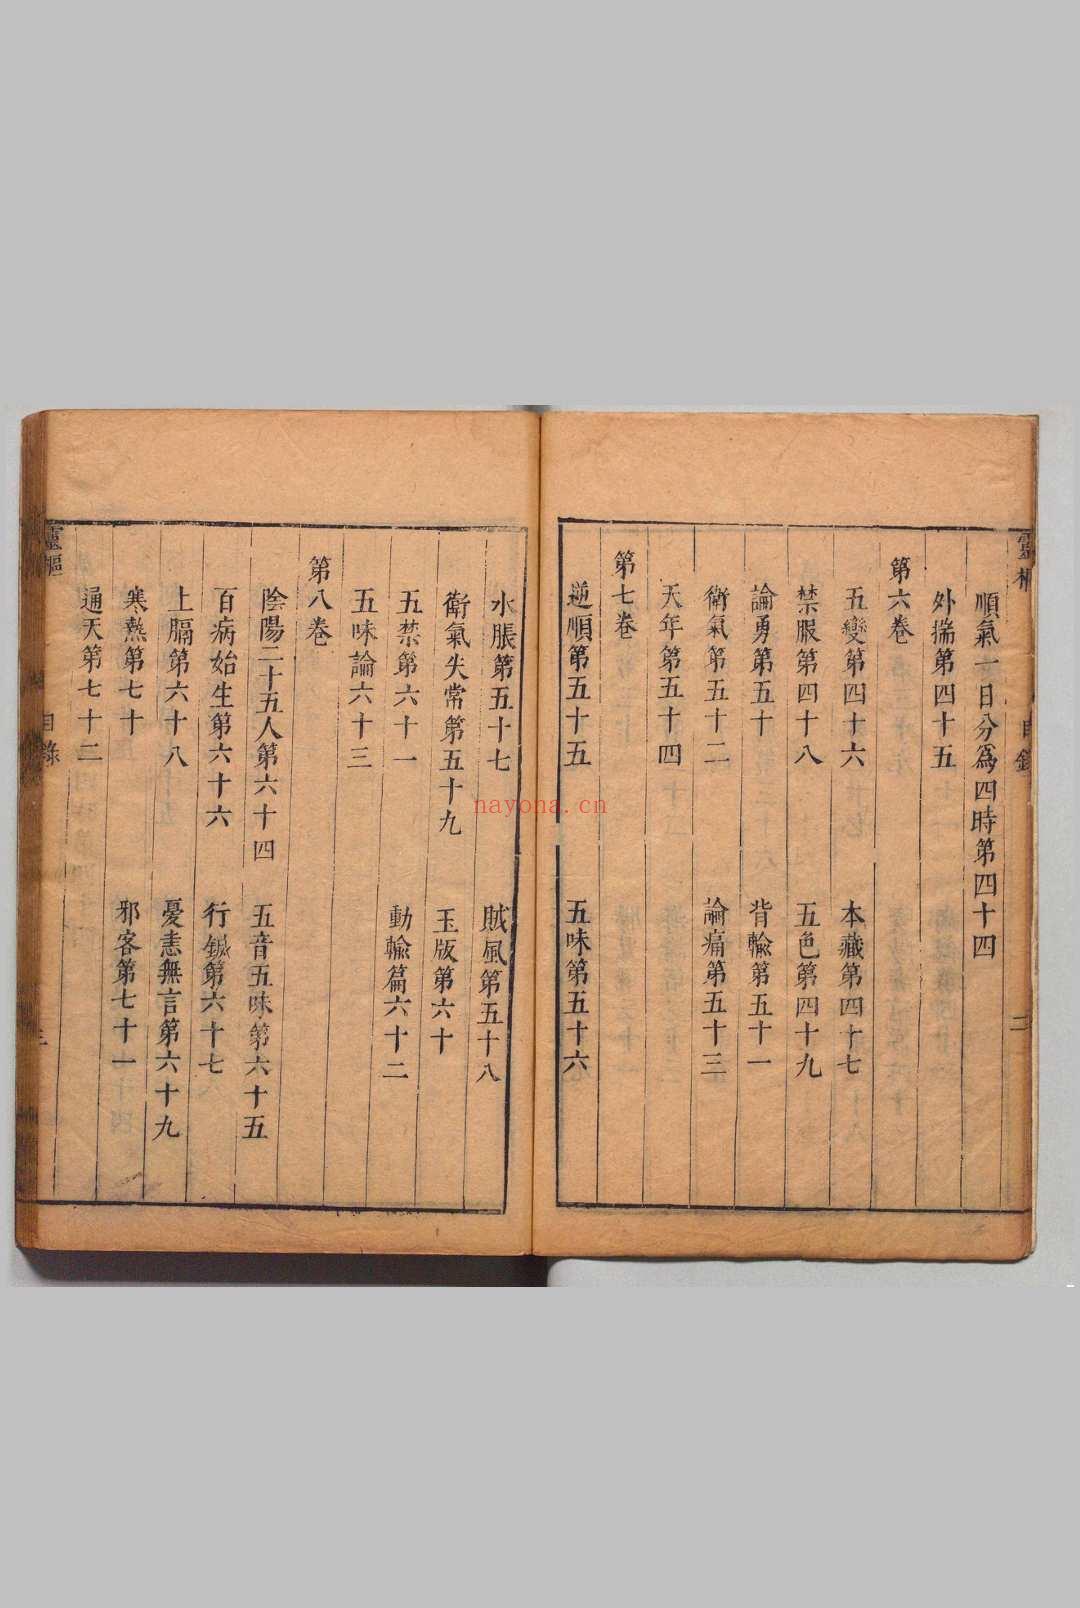 靈樞
目錄
二
順氣一日分爲四時第四十四
外揣第四十五
第六卷
五變第四十六　本藏第四十七
禁服第四十八　五色第四十九
論勇第五十　背腧第五十一
衛氣第五十二　論痛第五十三
天年第五十四
第七卷
逆順第五十五　五味第五十六
水脹第五十七　賊風第五十八
衛氣失常第五十九　玉版第六十
五禁第六十一　動輸篇六十二
五味論六十三
第八卷
陰陽二十五人第六十四　五音五味第六十五
百病始生第六十六　行鍼第六十七
上膈第六十八　憂恚無言第六十九
寒熱第七十　邪客第七十一
通天第七十二
靈樞
目錄
nayona.cn